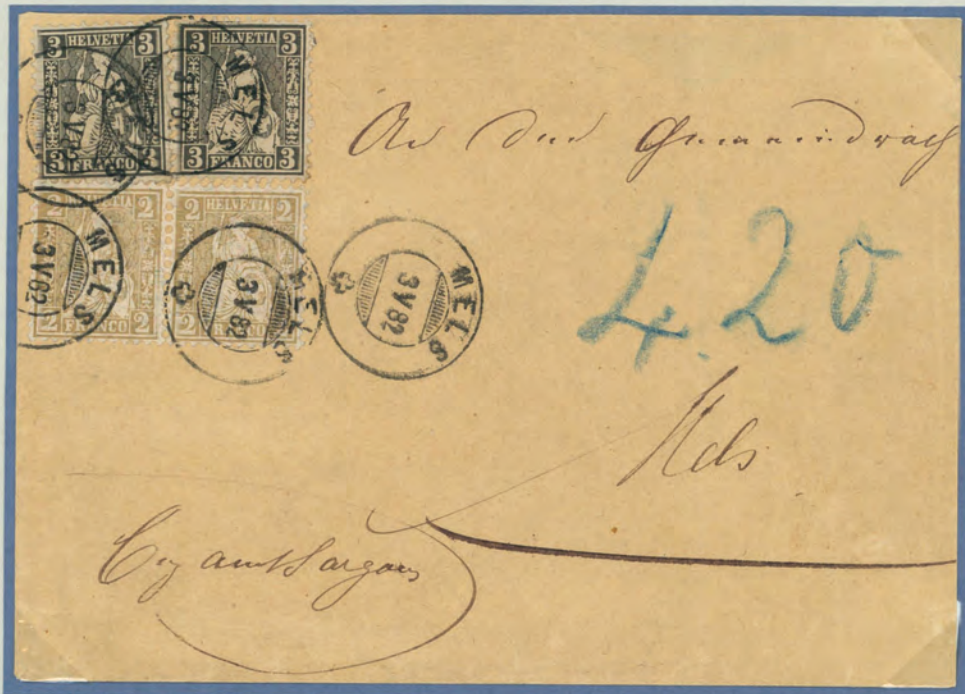 3 HELVETIA 3
3 FRANCO 3
3 HELVETIA 3
3 FRANCO 3
2 HELVETIA 2
2 FRANCO 2
2 HELVETIA 2
2 FRANCO
MELS
3 V 82
MELS
3 V 82
MELS
3 V 82
MELS
3 V 82
MELS
3 V 82
An den Gemeindrath
4.20
Mels